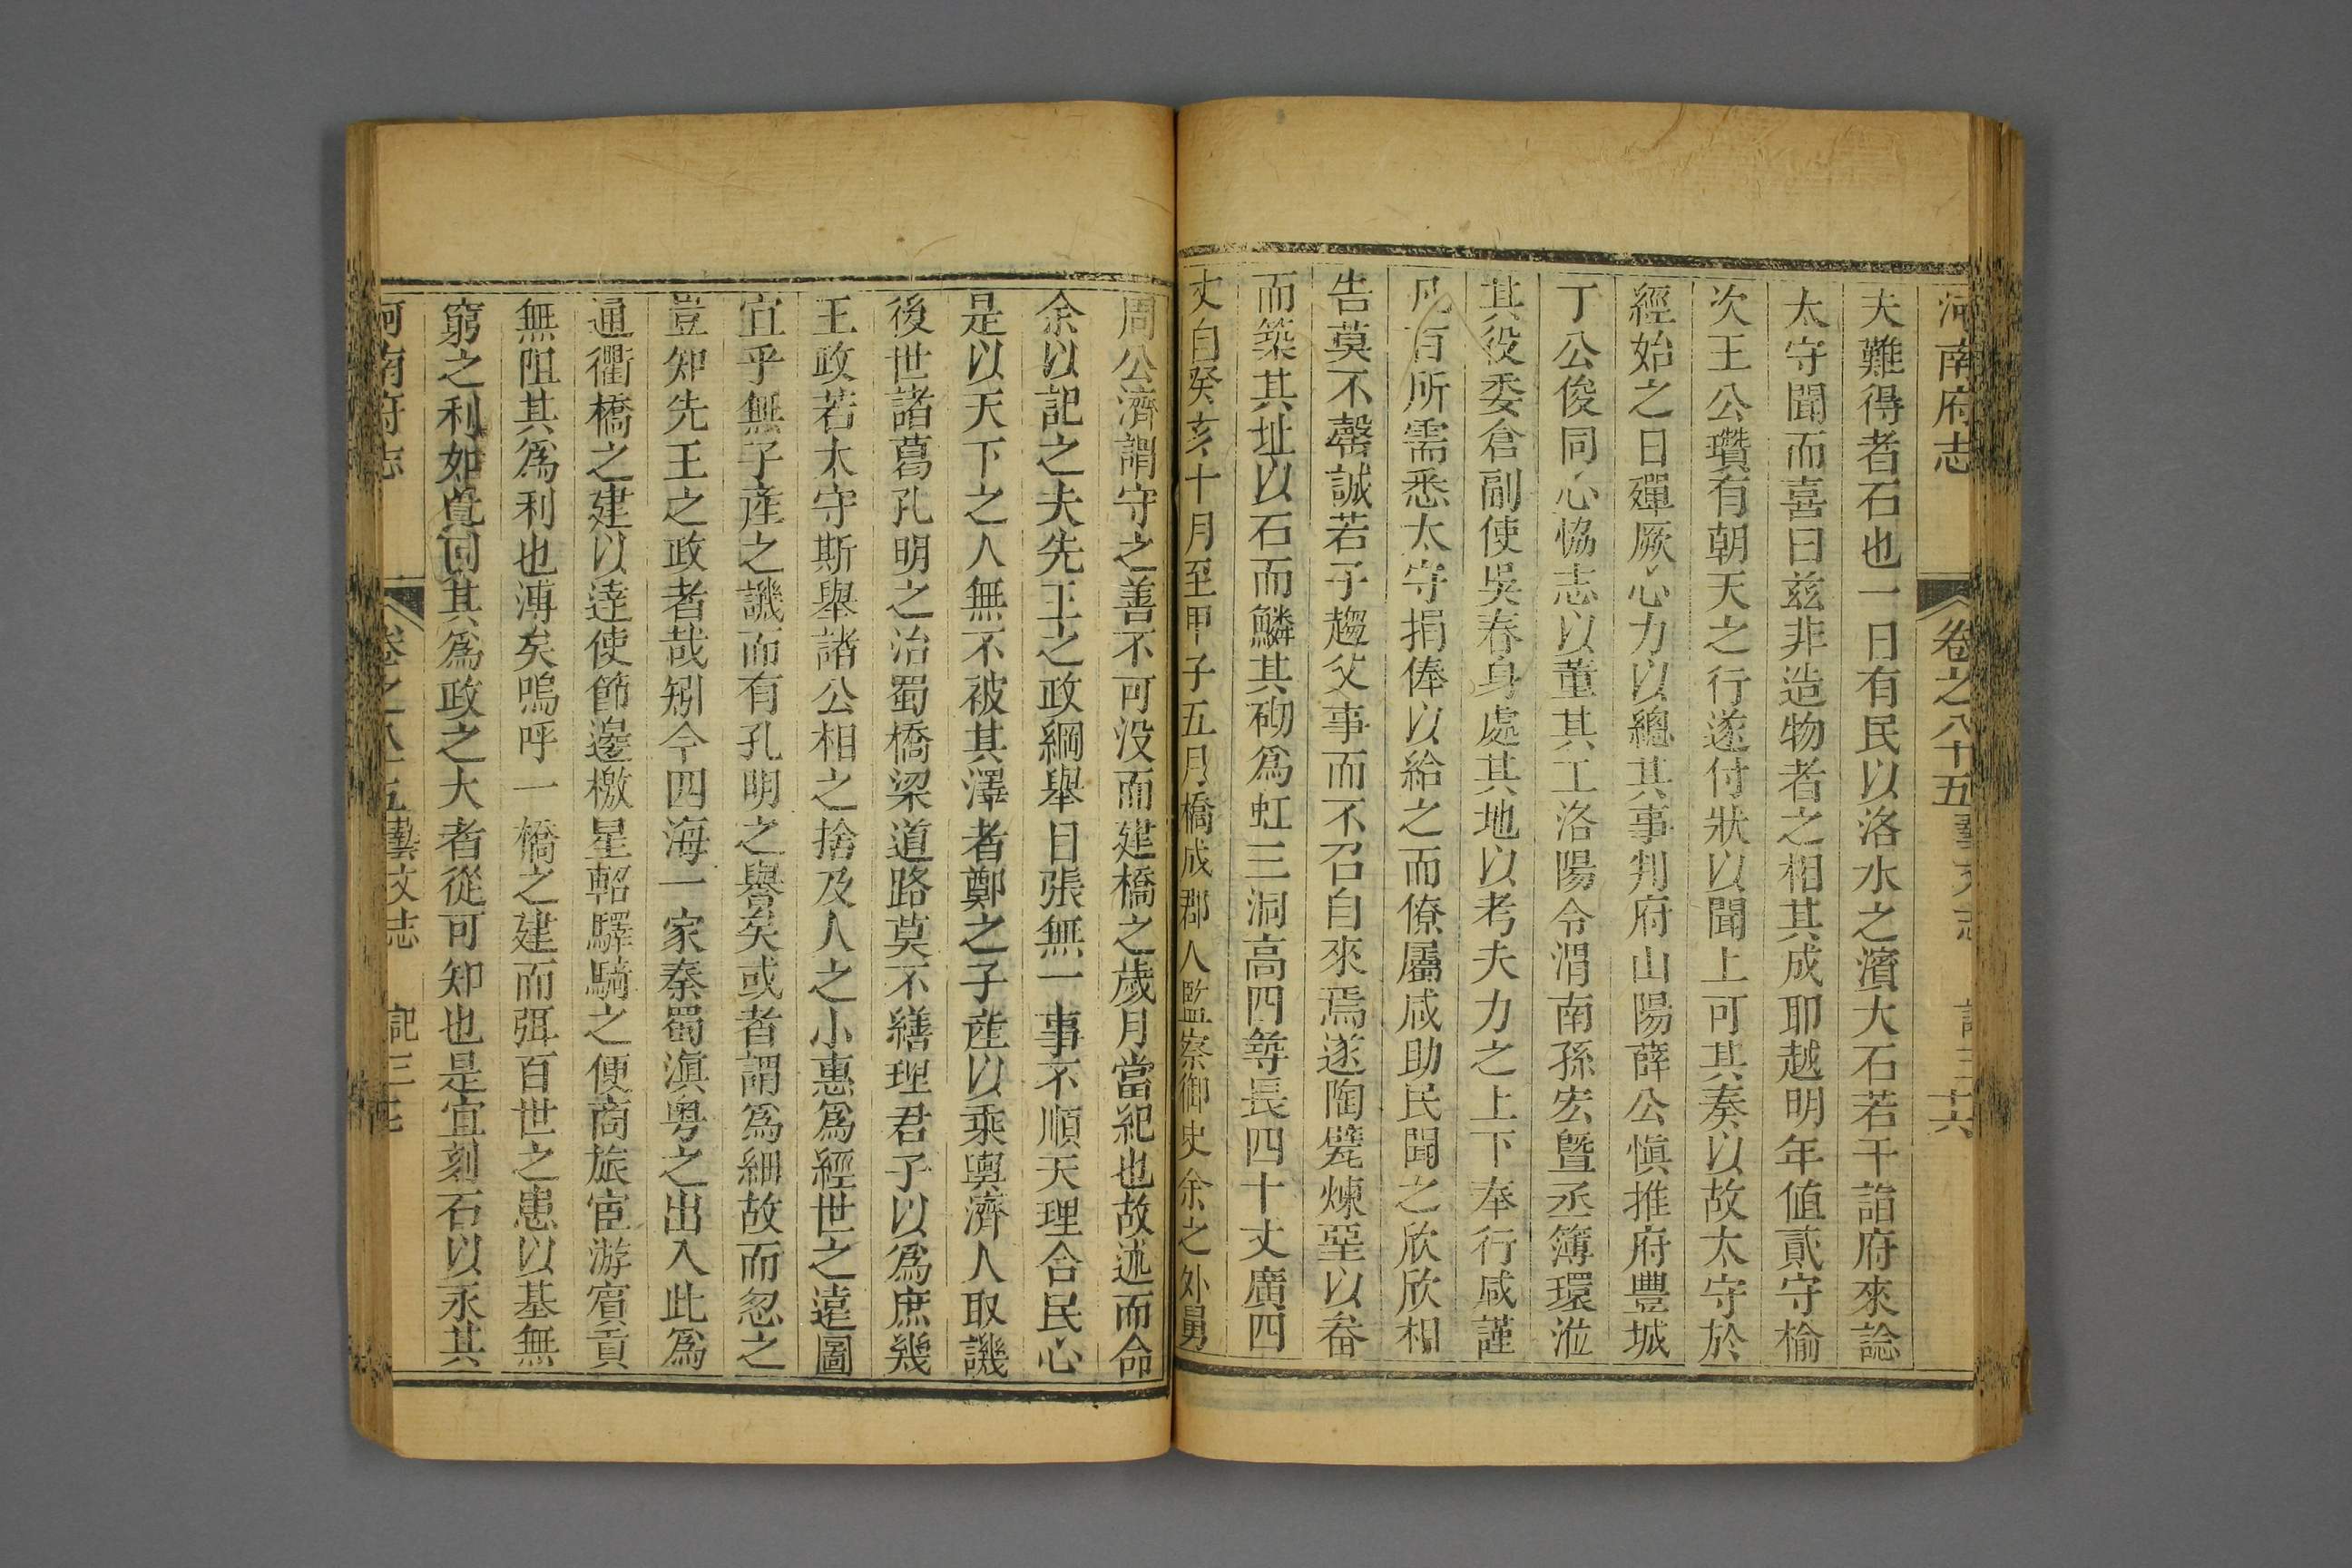 河南府志 卷之八十五 藝文志 記 三十六
夫難得者石也一日有民以洛水之濱大石若干詣府來諗
太守聞而喜曰茲非造物者之相其成耶越明年値貳守榆
次王公瓚有朝天之行遂付狀以聞上可其奏以故太守於
經始之日殫厥心力以總其事判府山陽薛公慎推府豐城
丁公俊同心恊志以董其工洛陽令渭南孫宏曁丞簿環涖
其役委倉副使吳春身處其地以考夫力之上下奉行咸謹
凡百所需悉太守捐俸以給之而僚屬咸助民聞之欣欣相
告莫不罄誠若子趨父事而不召自來焉遂陶甓煉堊以畚
而築其址以石而鱗其砌爲虹三洞高四尋長四十丈廣四
丈自癸亥十月至甲子五月橋成郡人監察御史余之外舅
周公濟謂守之善不可没而建橋之歲月當紀也故述而命
余以記之夫先王之政綱舉目張無一事不順天理合民心
是以天下之人無不被其澤者鄭之子產以乘輿濟人取譏
後世諸葛孔明之治蜀橋梁道路莫不繕理君子以爲庶幾
王政若太守斯舉諸公相之捨及人之小惠爲經世之遠圖
宜乎無子產之譏而有孔明之譽矣或者謂爲細故而忽之
豈知先王之政者哉矧今四海一家秦蜀滇粤之出入此爲
通衢橋之建以逹使節邊檄星軺驛騎之便商旅宦游賓貢
無阻其爲利也溥矣嗚呼一橋之建而弭百世之患以基無
窮之利如此囘其爲政之大者從可知也是宜刻石以永其
河南府志 卷之八十五 藝文志 記 三十七